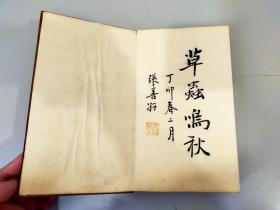 草蟲鳴秋
丁卯春二月
張善孖